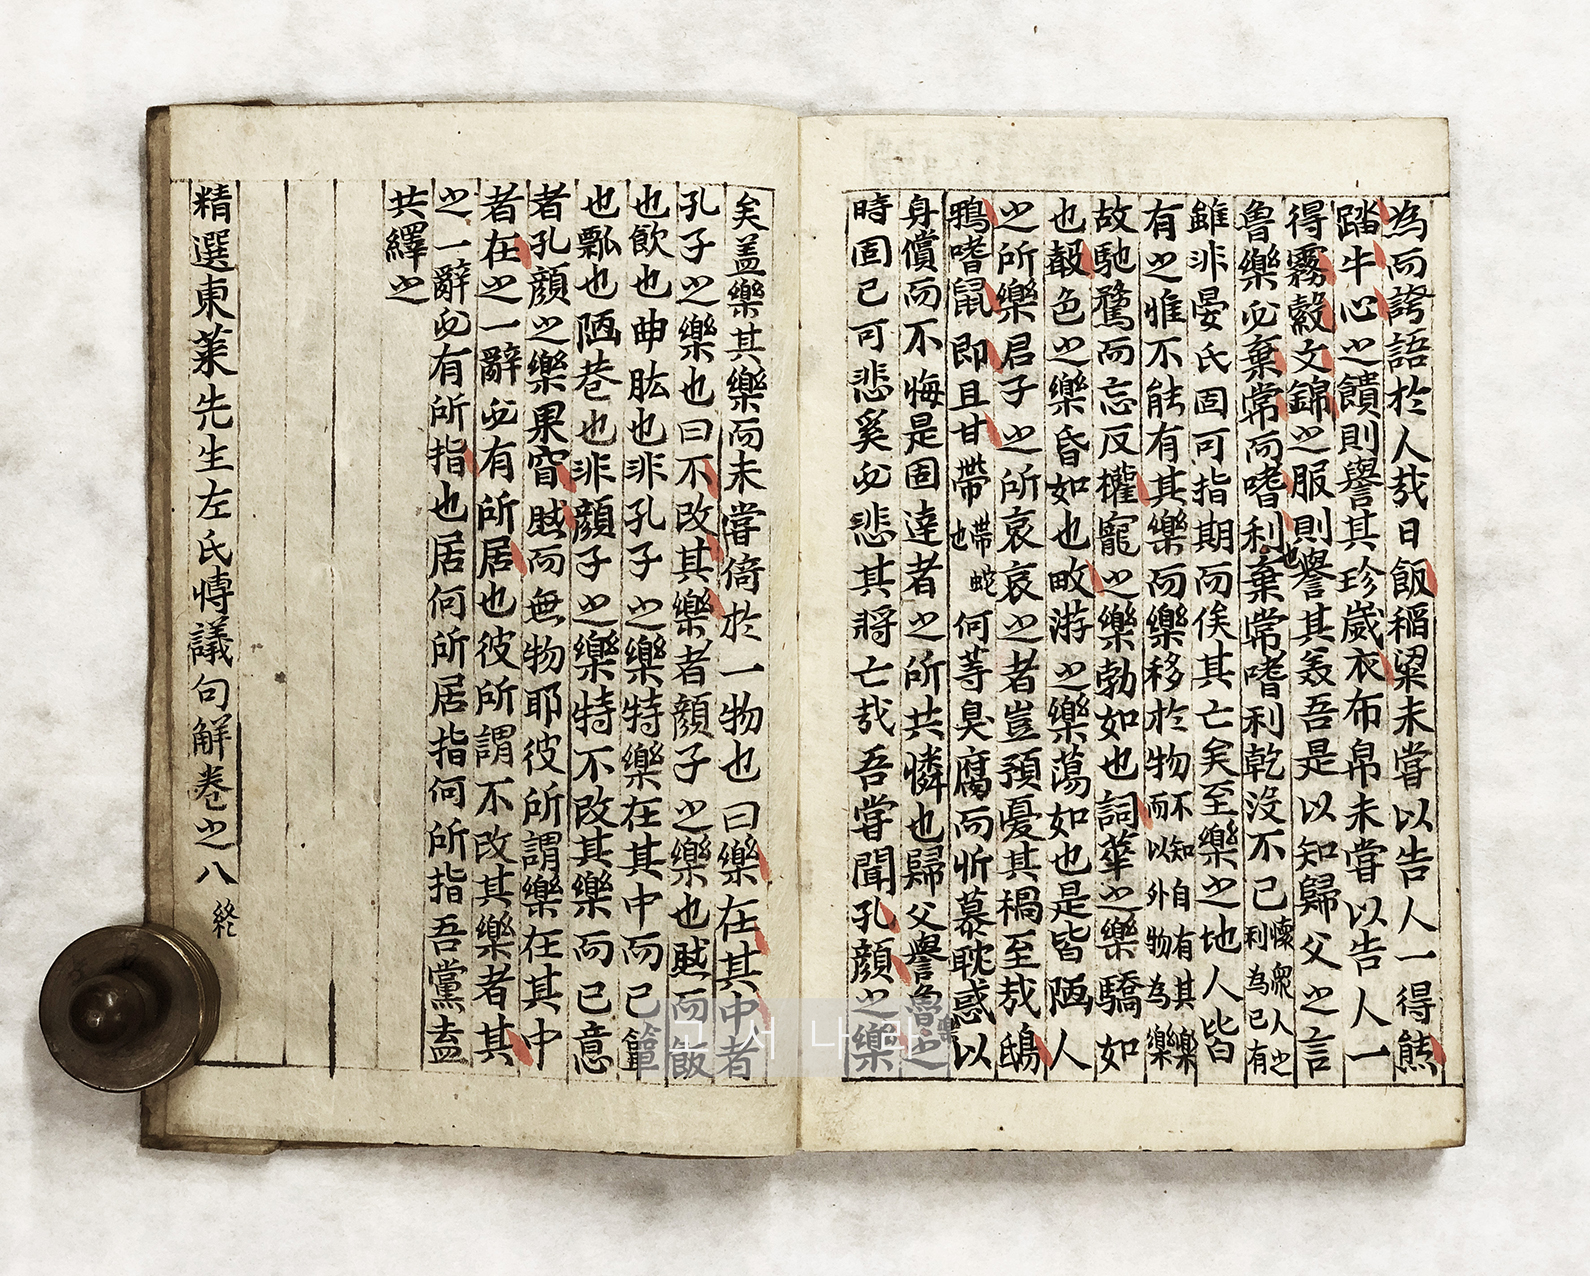 為而誇語於人哉日飯稻粱未嘗以告人一得熊
蹯牛心之饋則譽其珍歲衣布帛未嘗以告人一
得霧縠文錦之服則譽其美吾是以知歸父之言
魯樂也必棄常而嗜利棄常嗜利乾沒不已懷衆人之利為已有
雖非晏氏固可指期而俟其亡矣至樂之地人皆
有之惟不能有其樂而樂移於物不知自有其樂而以外物為樂
故馳騖而忘反權寵之樂勃如也詞華之樂驕如
也聲色之樂昏如也畋游之樂蕩如也是皆陋人
之所樂君子之所哀哀之者豈預憂其禍至哉鴟
鴉嗜鼠即且甘帶帶蛇也何等臭腐而忻慕耽惑以
身償而不悔是固達者之所共憐也歸父譽魯之樂
時固已可悲奚必悲其將亡哉吾嘗聞孔顏之樂
矣盖樂其樂而未嘗倚於一物也曰樂在其中者
孔子之樂也曰不改其樂者顏子之樂也然而飯
也飲也曲肱也非孔子之樂特樂在其中而已簞
也瓢也陋巷也非顏子之樂特不改其樂而已意
者孔顏之樂果窅然而無物耶彼所謂樂在其中
者在之一辭必有所居也彼所謂不改其樂者其
之一辭必有所指也居何所居指何所指吾黨盍
共繹之
精選東萊先生左氏愽議句解卷之八 終
고서나라